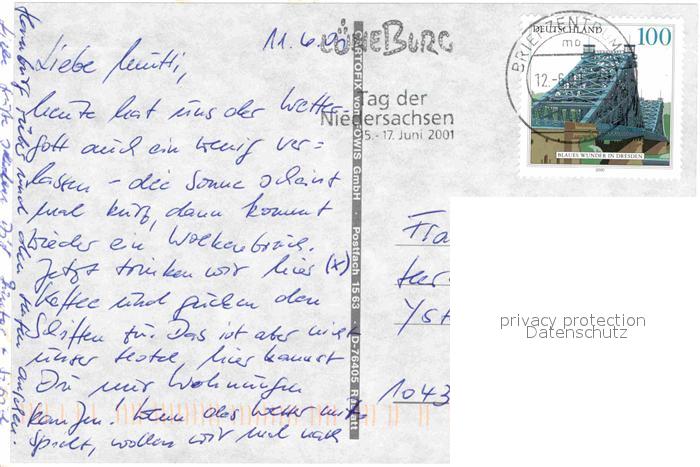 11.6.00
Liebe Mutti,
heute hat uns der Wetter-
gott auch ein wenig ver=
lassen – die Sonne scheint
mal kurz, dann kommt
wieder ein Wolkenbruch.
Jetzt trinken wir hier (x)
Kaffee und gucken den
Schiffen zu. Das ist aber nicht
unser Hotel, hier kannst
Du nur Wohnungen
kaufen! Wenn das Wetter mit
spielt, wollen wir mal nach
Hamburg rüber und den Hafen ansehen.
Liebe Grüße
CARTOFIX von TOWIS GmbH · Postfach 15 63 · D-76405 Rastatt
LÜNEBURG
Tag der
Niedersachsen
15.-17. Juni 2001
BRIEFZENTRUM
mo
12.-6.
DEUTSCHLAND
100
BLAUES WUNDER IN DRESDEN
2000
Fra
Yst
1043
privacy protection
Datenschutz